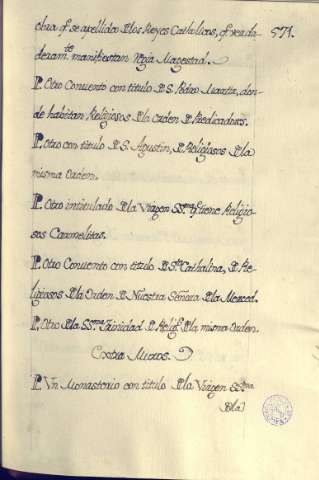 571.
obra q.e se apellida D los Reyes Catholicos, q.e verda
deram.te manifiestan Regia Magestad.
P. Otro Convento con titulo D S. Pedro Martir, don-
de habitan Religiosos D la Orden D Predicadores.
P. Otro con titulo D S. Agustin, D Religiosos D la
misma Orden.
P. Otro intitulado D la Virgen SS.ma tiene Religio-
sos Carmelitas.
P. Otro Convento con titulo D S.ta Cathalina, D Re-
ligiosos D la Orden D Nuestra Señora D la Merced.
P. Otro D la SS.ma Trinidad D Relig.s D la misma Orden.
Extra Muros.
P. Vn Monasterio con titulo D la Virgen SS.ma
D la